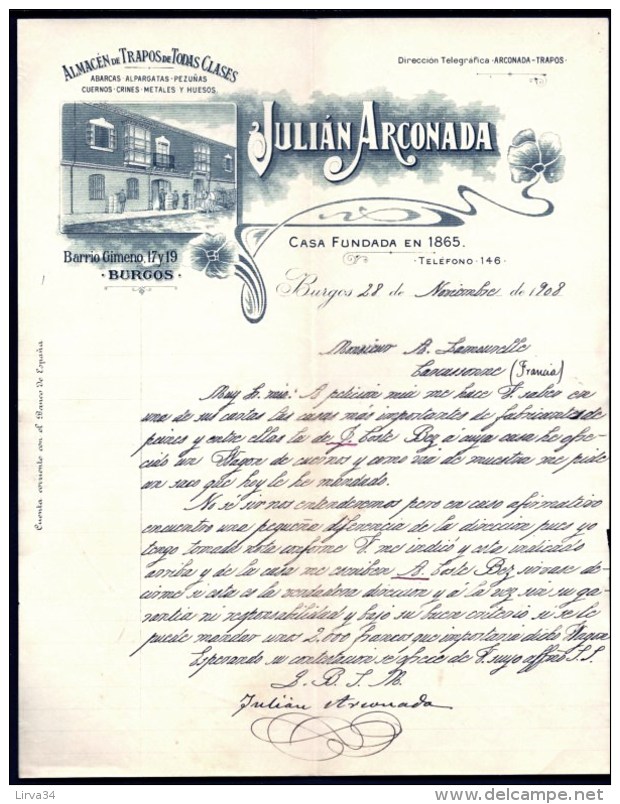 ALMACÉN DE TRAPOS DE TODAS CLASES
ABARCAS · ALPARGATAS · PEZUÑAS
CUERNOS · CRINES · METALES Y HUESOS
Dirección Telegráfica · ARCONADA-TRAPOS ·
JULIÁN ARCONADA
CASA FUNDADA EN 1865.
· TELÉFONO · 146 ·
Barrio Gimeno, 17 y 19
· BURGOS ·
Cuenta corriente con el Banco de España
Burgos 28 de Noviembre de 1908
Monsieur A. Lamourelle
Carcassonne (Francia)
Muy S. mio: A petición mia me hace V. saber en
una de sus cartas las casas más importantes de fabricantes de
peines y entre ellas la de J. Corte Bez á cuya casa he ofre-
cido un Wagon de cuernos y como via de muestra me pide
un saco que hoy le he mandado.
No sé si nos entenderemos pero en caso afirmativo
encuentro una pequeña diferencia de la dirección pues yo
tengo tomado nota conforme V. me indicó y esta indicado
arriba y de la casa me escriben A. Corte Bez sirvase de-
cirme si esta es la verdadera dirección y á la vez sin su ga-
rantia ni responsabilidad y bajo su buen criterio si se le
puede mandar unos 2.000 francos que importaria dicho Wagon
Esperando su contestacion se ofrece de V. suyo affmo S. S.
Q. B. S. M.
Julián Arconada
Lirva34
www.delcampe.net